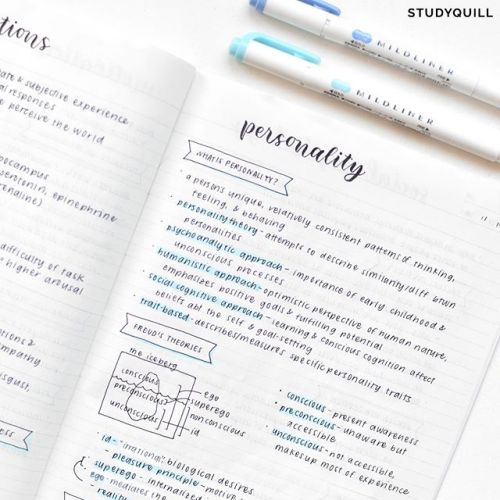 STUDYQUILL
MILDLINER
MILDLINER
tions
& subjective experience
responses
perceive the world
hippocampus
serotonin, epinephrine
difficulty of task
higher arousal
&
empathy
disgust,
personality
WHAT IS PERSONALITY?
• a person's unique, relatively consistent patterns of thinking,
feeling, & behaving
• personality theory - attempts to describe similarity/diff btwn
personalities
• psychoanalytic approach - importance of early childhood &
unconscious processes
• humanistic approach - optimistic perspective of human nature,
emphasizes positive goals & fulfilling potential
• social cognitive approach - learning & conscious cognition affect
beliefs abt the self & goal-setting
• trait-based - describes/measures specific personality traits
FREUD'S THEORIES
the iceberg
conscious
preconscious
unconscious
ego
superego
nonconscious
id
• conscious - present awareness
• preconscious - unaware but
accessible
• unconscious - not accessible,
makes up most of experience
• id - "irrational": biological desires
- pleasure principle - motive
• superego - internalized
• ego - mediates the
reality